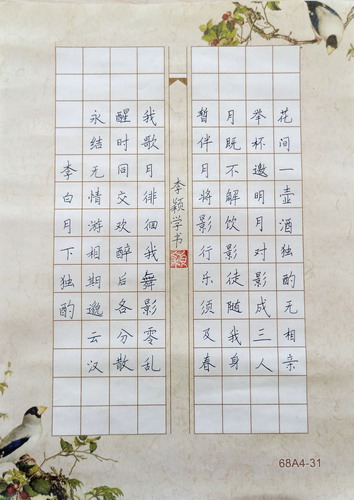 花间一壶酒独酌无相亲
举杯邀明月对影成三人
月既不解饮影徒随我身
暂伴月将影行乐须及春
李颖学书
我歌月徘徊我舞影零乱
醒时同交欢醉后各分散
永结无情游相期邈云汉
李白月下独酌
68A4-31